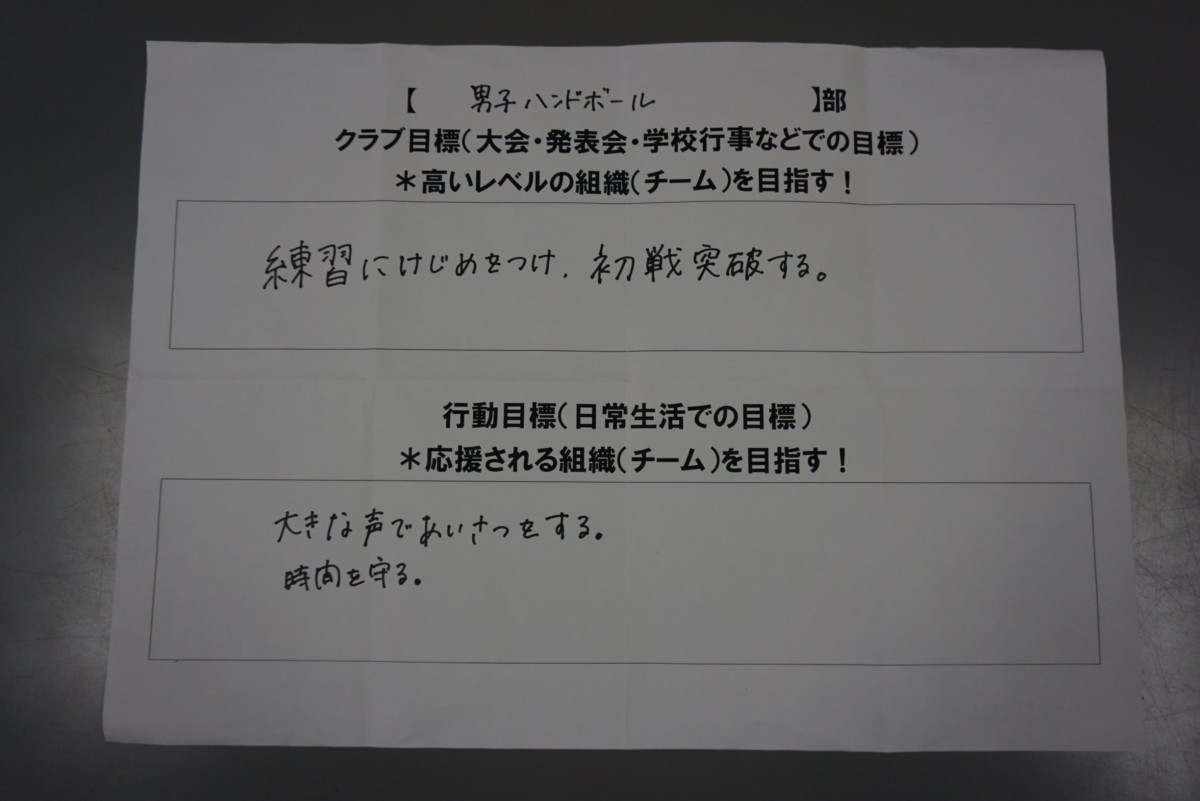 【 男子ハンドボール 】部
クラブ目標(大会・発表会・学校行事などでの目標)
＊高いレベルの組織(チーム)を目指す！
練習にけじめをつけ、初戦突破する。
行動目標(日常生活での目標)
＊応援される組織(チーム)を目指す！
大きな声であいさつをする。
時間を守る。